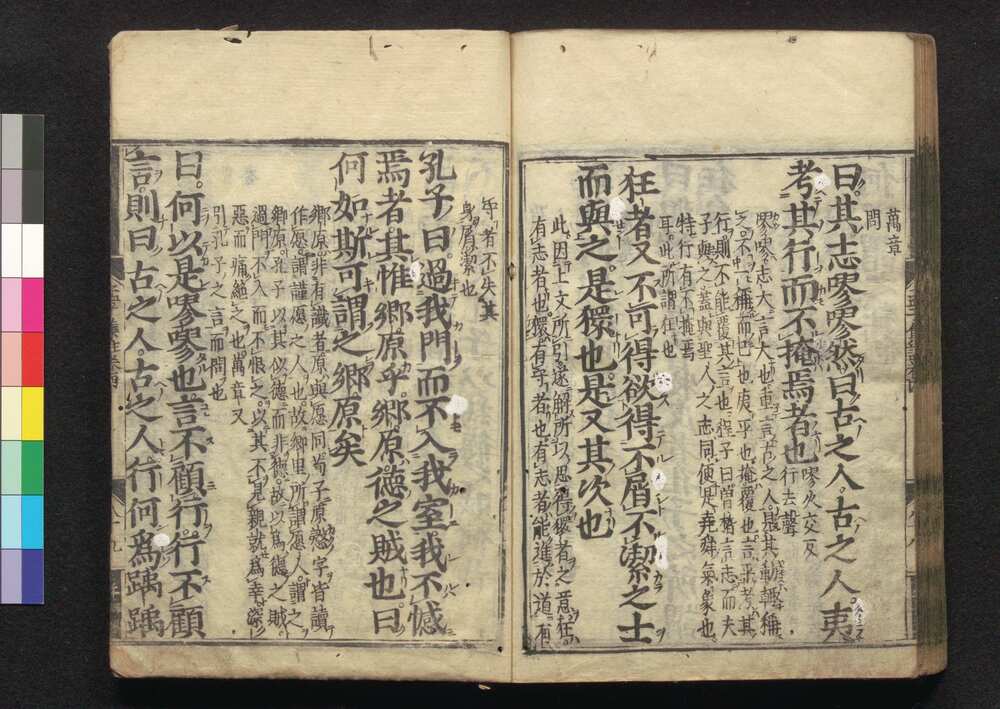 萬章
問
曰。其志嘐嘐然曰古之人。古之人夷
考其行而不掩焉者也
嘐火交反
行去聲
嘐嘐志大言大也重言古之人見其動輒稱
之不一稱而已也夷平也掩覆也言平考其
行則不能覆其言也程子曰曾晳言志而夫
子與之蓋與聖人之志同便是堯舜氣象也
特行有不掩焉
耳此所謂狂也
狂者又不可得欲得不屑不潔之士
而與之是獧也是又其次也
此因上文所引遂解所以思得獧者之意狂
有志者也獧有守者也有志者能進於道有
守者不失其
身屑潔也
孔子曰。過我門而不入我室我不憾
焉者。其惟鄉原乎。鄉原德之賊也。曰
何如斯可謂之鄉原矣
鄉原非有識者原與愿同荀子原愨字皆讀
作愿謂謹愿人也故鄉里所謂愿人謂之
鄉原孔子以其似德而非德故以為德之賊
過門不入而不恨之以其不見親就為幸深
惡而痛絕之也萬章又
引孔子之言而問也
曰。何以是嘐嘐也言不顧行。行不顧
言。則曰古之人。古之人行何爲踽踽